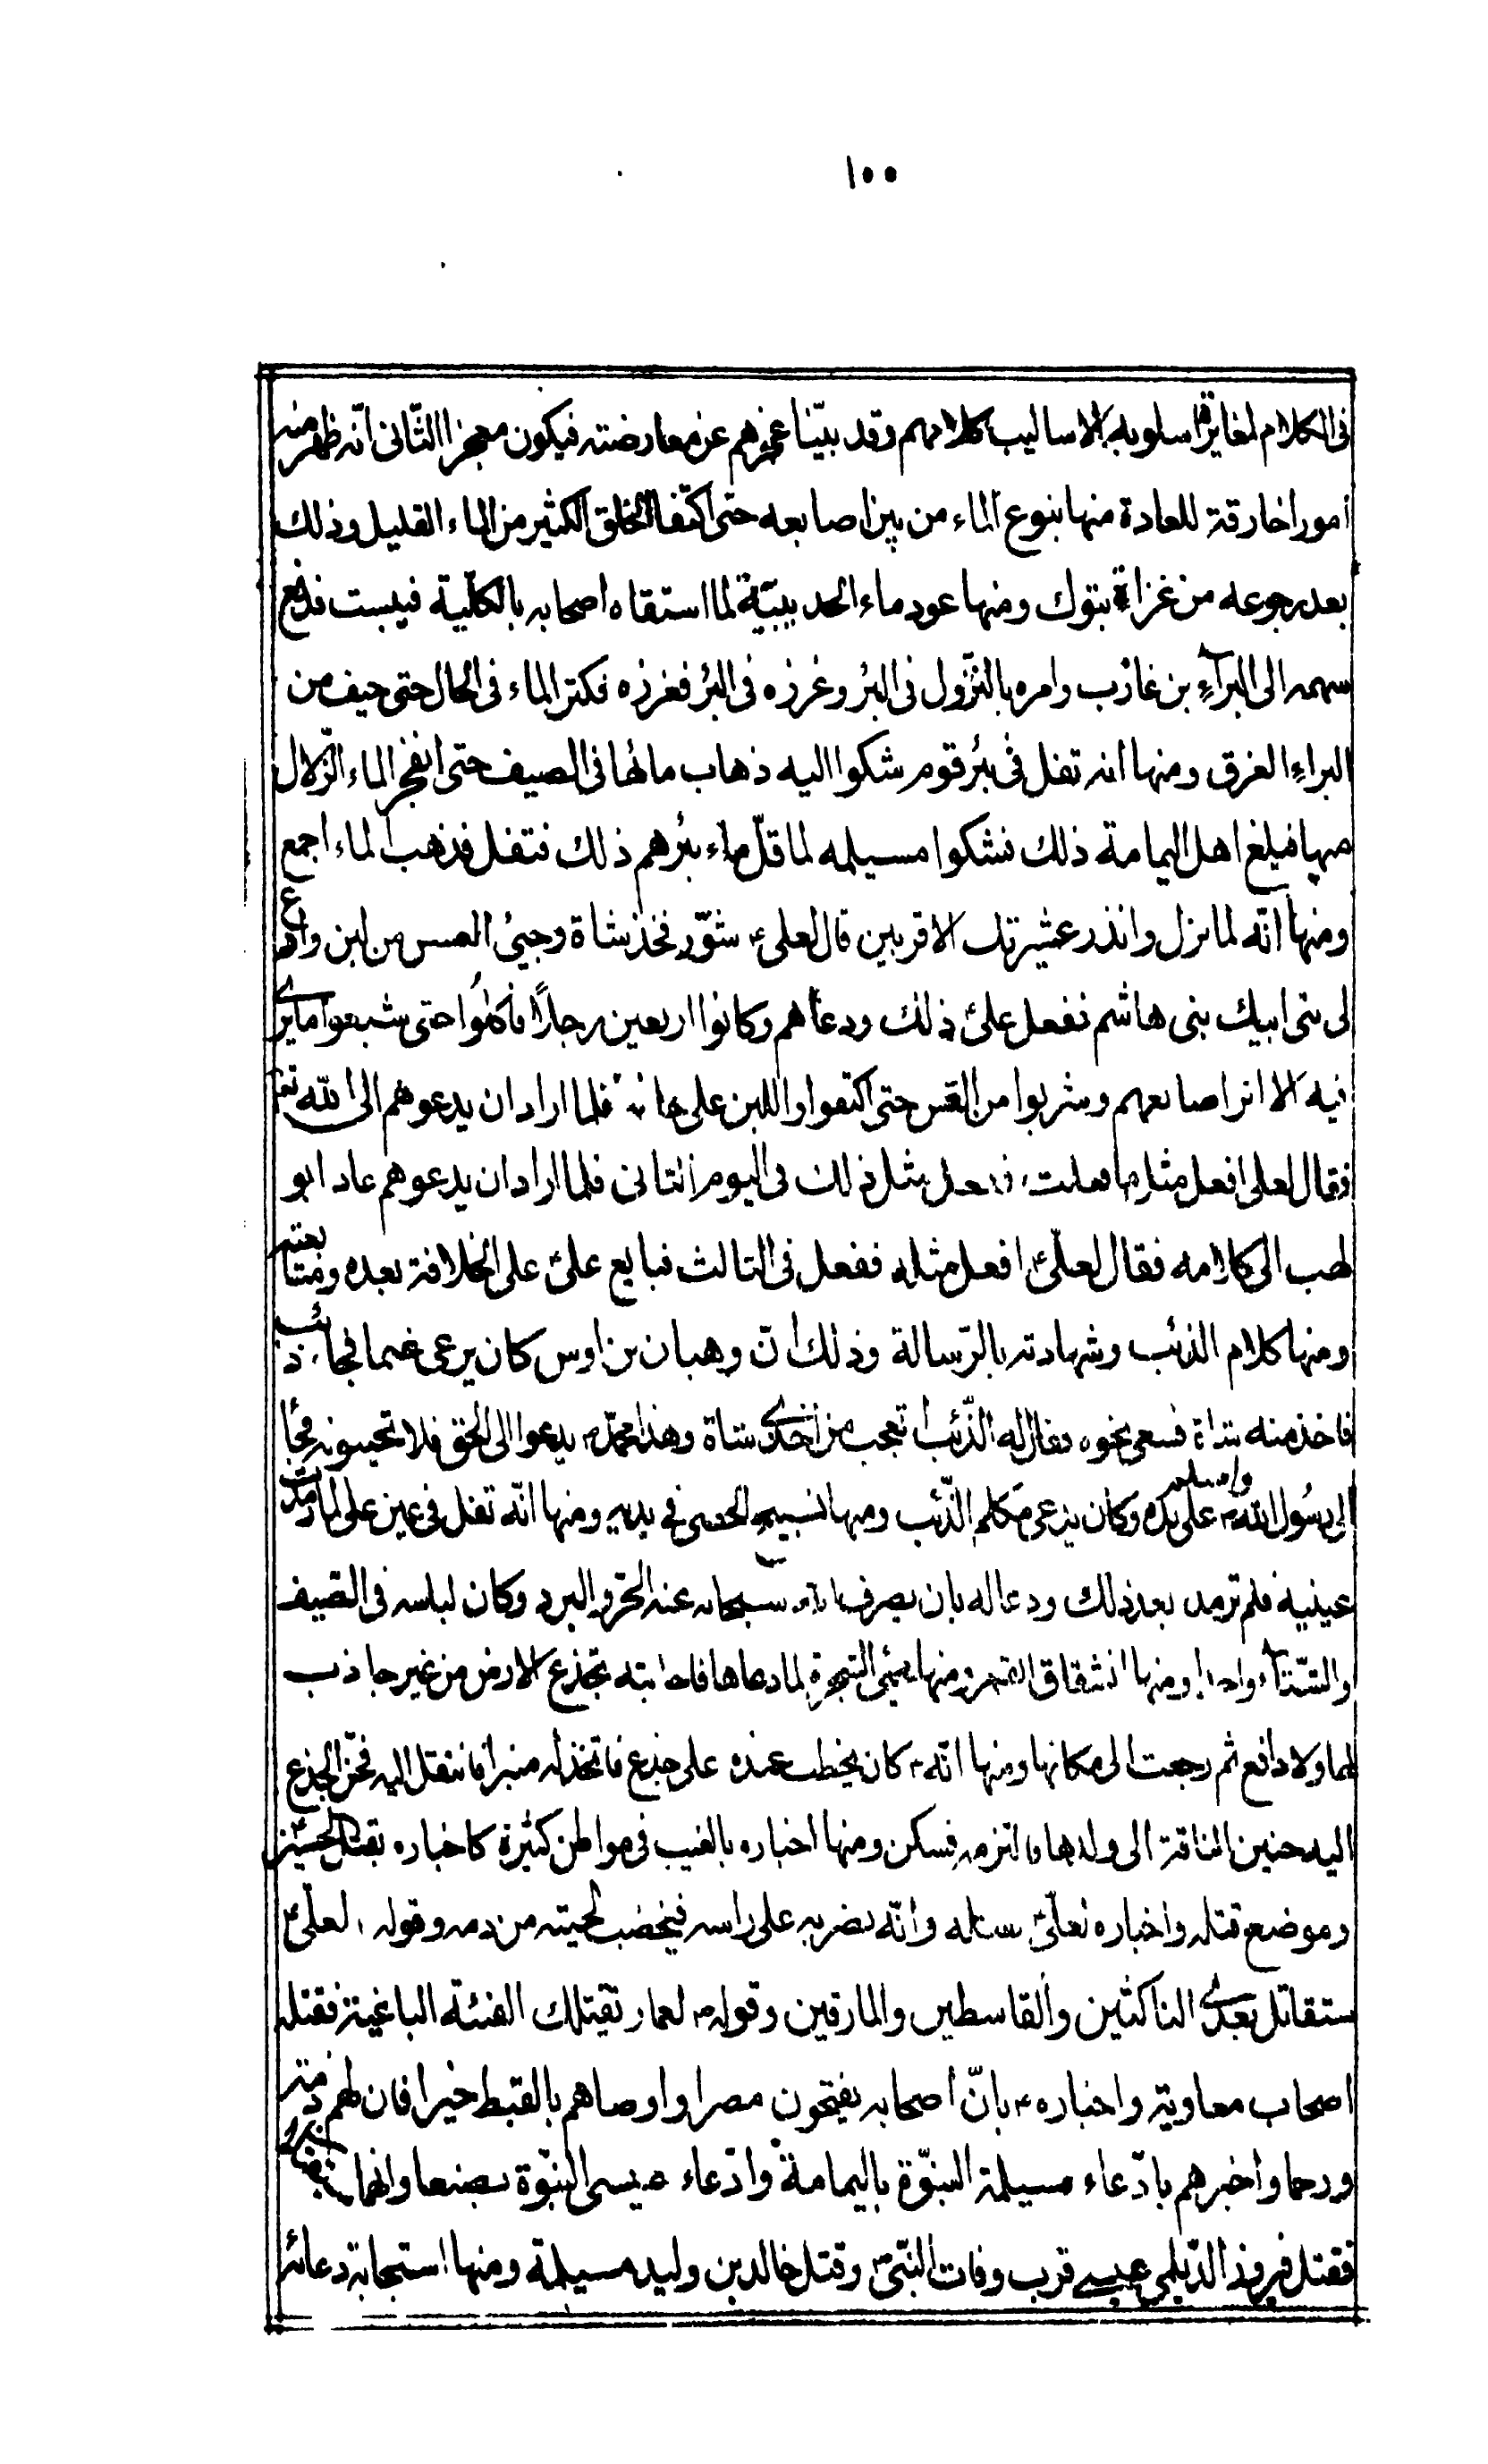 ١٠٠
فى الكلام لمغايرة اسلوبه لاساليب كلامهم وقد بيّنا عجزهم عن معارضته فيكون معجزا الثّانى انّه ظهر منه
امورا خارقة للعادة منها نبوع الماء من بين اصابعه حتى اكتفا الخلق الكثير من الماء القليل وذلك
بعد رجوعه من غزاة تبوك ومنها عود ماء الحديبيّة لما استقاه اصحابه بالكلّية فيبست فدفع
سهمه الى البرآء بن عازب وامره بالنّزول فى البئر وغرزه فى البئر فغرزه فكثر الماء فى الحال حتى خيف من
البراء الغرق ومنها انه تفل فى بئر قوم شكوا اليه ذهاب مائها فى الصيف حتى انفجر الماء الزّلال
منها فبلغ اهل اليمامة ذلك فشكوا مسيلمه لما قلّ ماء بئرهم ذلك فتفل فذهب الماء اجمع
ومنها انّه لما نزل وانذر عشيرتك الاقربين قال لعلى ع شوّر فخذ شاة وجئ العس من لبن وادع
لى بنى ابيك بنى هاشم ففعل علىّ ذلك ودعاهم وكانوا اربعين رجلاً فأكلوا حتى شبعوا ما يرى
فيه الا اثر اصابعهم وشربوا من العس حتى اكتفوا واللبن على حاله فلما اراد ان يدعوهم الى اللّه تعم
فقال لعلى افعل مثل ما فعلت ففعل مثل ذلك فى اليوم الثانى فلما اراد ان يدعوهم عاد ابو
لهب الى كلامه فقال لعلّى افعل مثله ففعل فى الثالث فبايع علىّ على الخلافة بعده ومتابعته
ومنها كلام الذئب وشهادته بالرّسالة وذلك انّ وهبان بن اوس كان يرعى غنما فجاء ذئب
فاخذ منه شاة فسعى نحوه فقال له الذّئب اتعجب من اخذى شاة وهذا محمّد يدعوا الى الحق فلا تجيبونه فجاء
الى رسُول اللّه واسلم على يده وكان يدعى مكلم الذّئب ومنها تسبيح الحصى فى يديه ومنها انّه تفل فى عين على لما رمدت
عينيه فلم ترمد بعد ذلك ودعا له بان يصرف اللّه سبحانه عنه الحرّ والبرد وكان لباسه فى الصّيف
والشتاء واحدا ومنها انشقاق القمر ومنها مجئ الشجرة لما دعاها فاجابته تخذع الارض من غير جاذب
لها ولا دافع ثم رجعت الى مكانها ومنها انّه كان يخطب عنده على جذع فاتخذ له منبرا فانتقل اليه فحنّ الجذع
اليه حنين الناقة الى ولدها فالتزمه فسكن ومنها اخباره بالغيب فى مواطن كثيرة كاخباره بقتل الحسين
وموضع قتله واخباره لعلّى بقتله وانّه يضربه على راسه فيخضب لحيته من دمه وقوله لعلّى
ستقاتل بعدى الناكثين والقاسطين والمارقين وقوله لعمار تقتلك الفئة الباغية فقتله
اصحاب معاوية واخباره بانّ اصحابه يفتحون مصرا واوصاهم بالقبط خيرا فان لهم ذمّة
ورحما واخبرهم بادّعاء مسيلمة النبوّة باليمامة وادّعاء عيسى النبوّة بصنعا وانهما
فقتل فيروز الدّيلمى عيسى قرب وفات النبّى وقتل خالد بن وليد مسيلمة ومنها استجابة دعائه